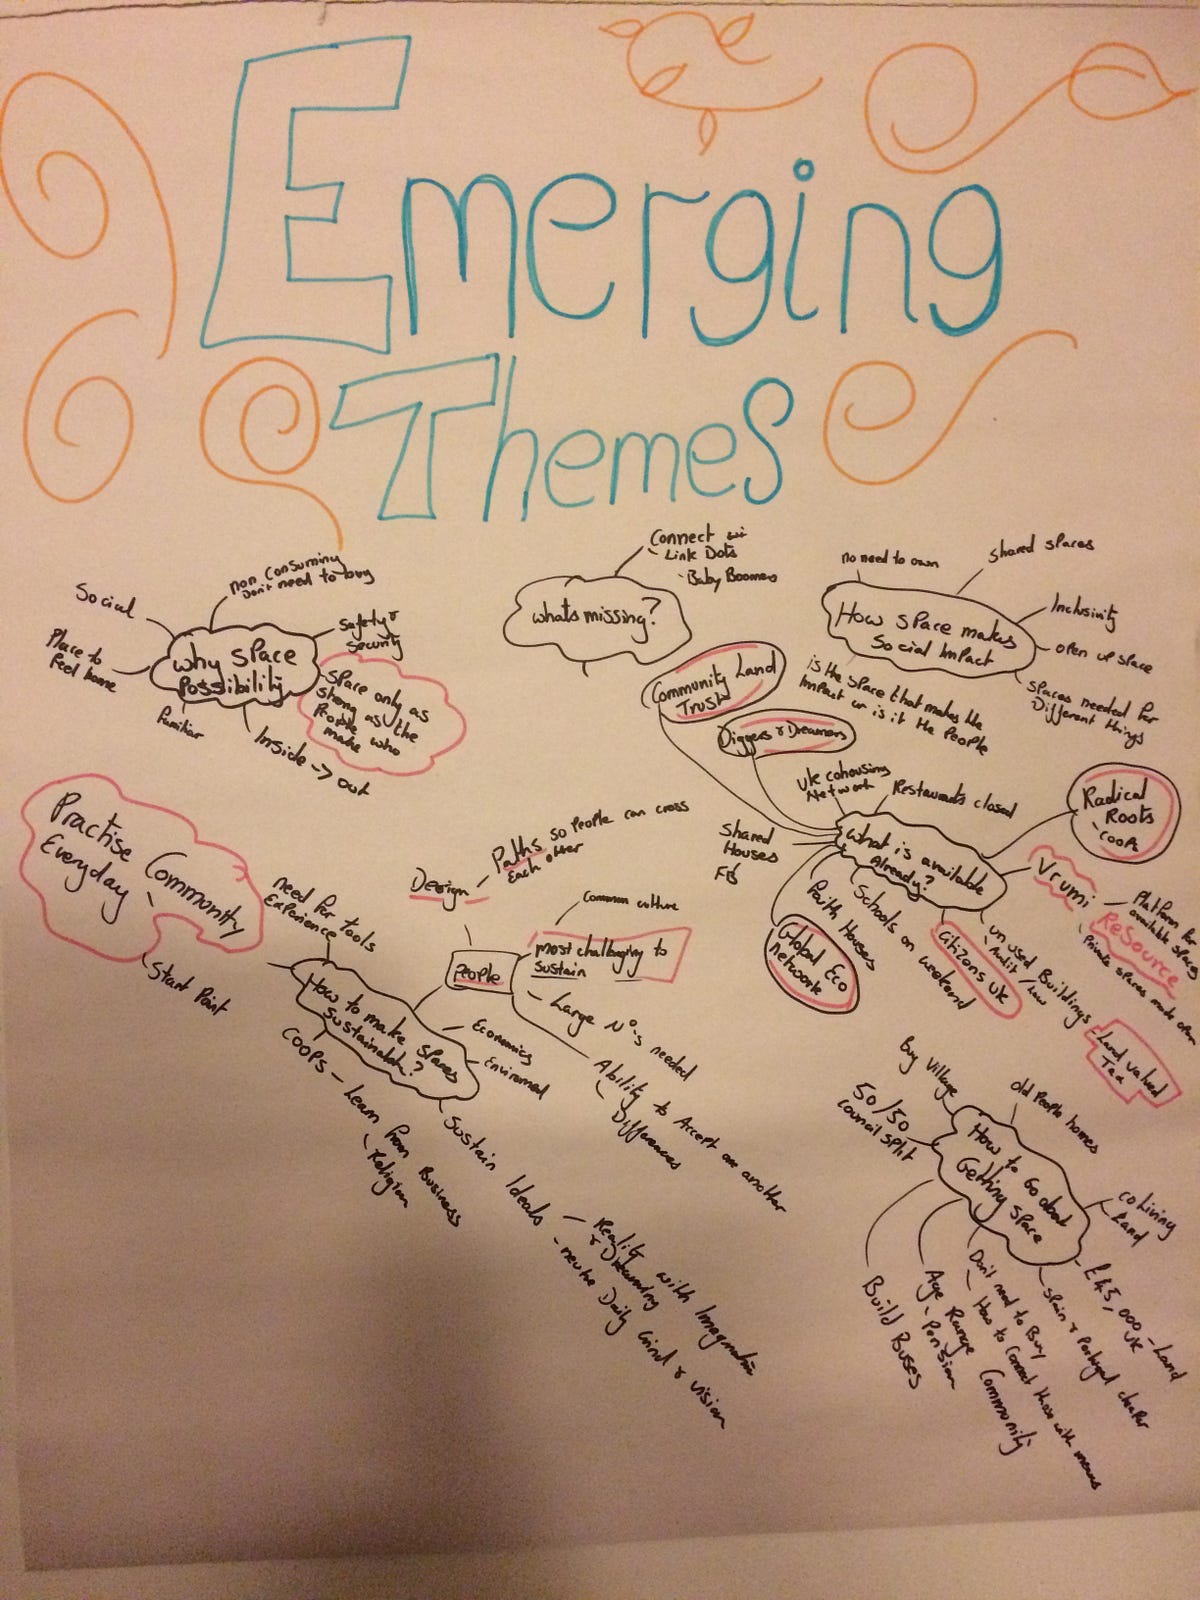 Emerging
Themes
non consuming
Don't need to buy
Social
Safety &
Security
Place to
Feel home
Why space
Possibility
Familiar
Inside → out
Space only as
strong as the
People who
make
What's missing?
Connect
- Link Dots
- Baby Boomers
no need to own
shared spaces
How space makes
Social Impact
Inclusivity
- open up space
spaces needed for
Different things
is the space that makes the
Impact or is it the People
Community Land
Trust
Diggers & Dreamers
UK cohousing
Network
Restaurants closed
Radical
Roots
- COOPs
What is available
Already?
Shared
Houses
FB
Faith Houses
Global Eco
network
Schools on
weekend
Citizens UK
unused Buildings
- Audit / Law
Land valued
Tax
Vrumi
- Platform for
available spaces
Resource
Private spaces made open
Practise Community
Everyday
Start Point
need for tools
Experience
How to make spaces
Sustainable?
Design
- Paths so People can cross
Each other
People
Common culture
most challenging to
sustain
- Large N°s needed
Ability to Accept one another
- Differences
Economics
COOPs - Learn from Business
- Religion
Sustain Ideals
- Reality with Imagination
& Dreaming
Daily Grind & vision
How to Go about
Getting space
Buy Village
50/50
council split
old People homes
coLiving
Land
£45,000 - Land
UK
Spain & Portugal cheaper
Don't need to Buy
- How to Connect those with means
Age Range Community
- Pension
Build Buses